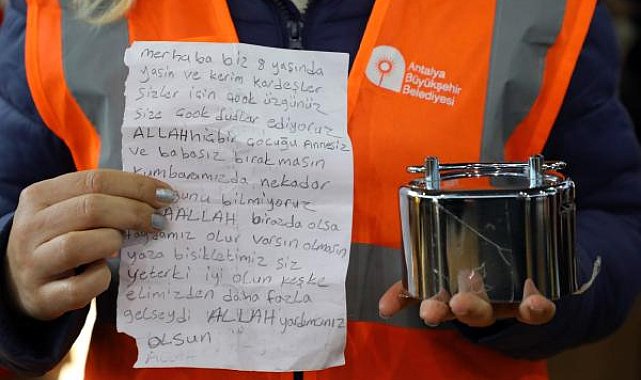 merhaba biz 8 yaşında
yasin ve kerim kardeşler
sizler için çook üzgünüz
size çook dualar ediyoruz
ALLAH hiçbir çocuğu Annesiz
ve babasız bırakmasın
kumbaramızda nekadar
bilmiyoruz
ALLAH birazda olsa
faydamız olur varsın olmasın
yaza bisikletimiz siz
yeterki iyi olun keşke
elimizden daha fazla
gelseydi ALLAH yardımınız
OLSUN
Antalya
Büyükşehir
Belediyesi